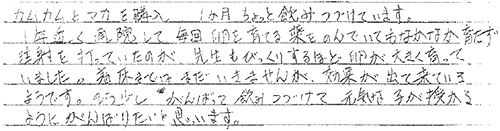 カムカムとマカを購入、1ヶ月ちょっと飲みつづけています。
1年近く通院して毎回卵を育てる薬をのんでいてもなかなか育たず
注射を打っていたのが、先生もびっくりするほど卵が大きく育って
いました。着床まではまだいきませんが、効果が出て来ている
ようです。もう少しがんばって飲みつづけて元気な子が授かる
ようにがんばりたいと思います。